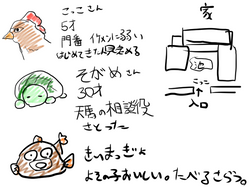 こっこさん
5才
門番 イケメンに弱い
はじめてきた人見とめる
そがめさん
30才
天馬の相談役
さとったー
きいまっぎょ
よその子おいしい。たべるさらう。
家
池
こっこ
入口